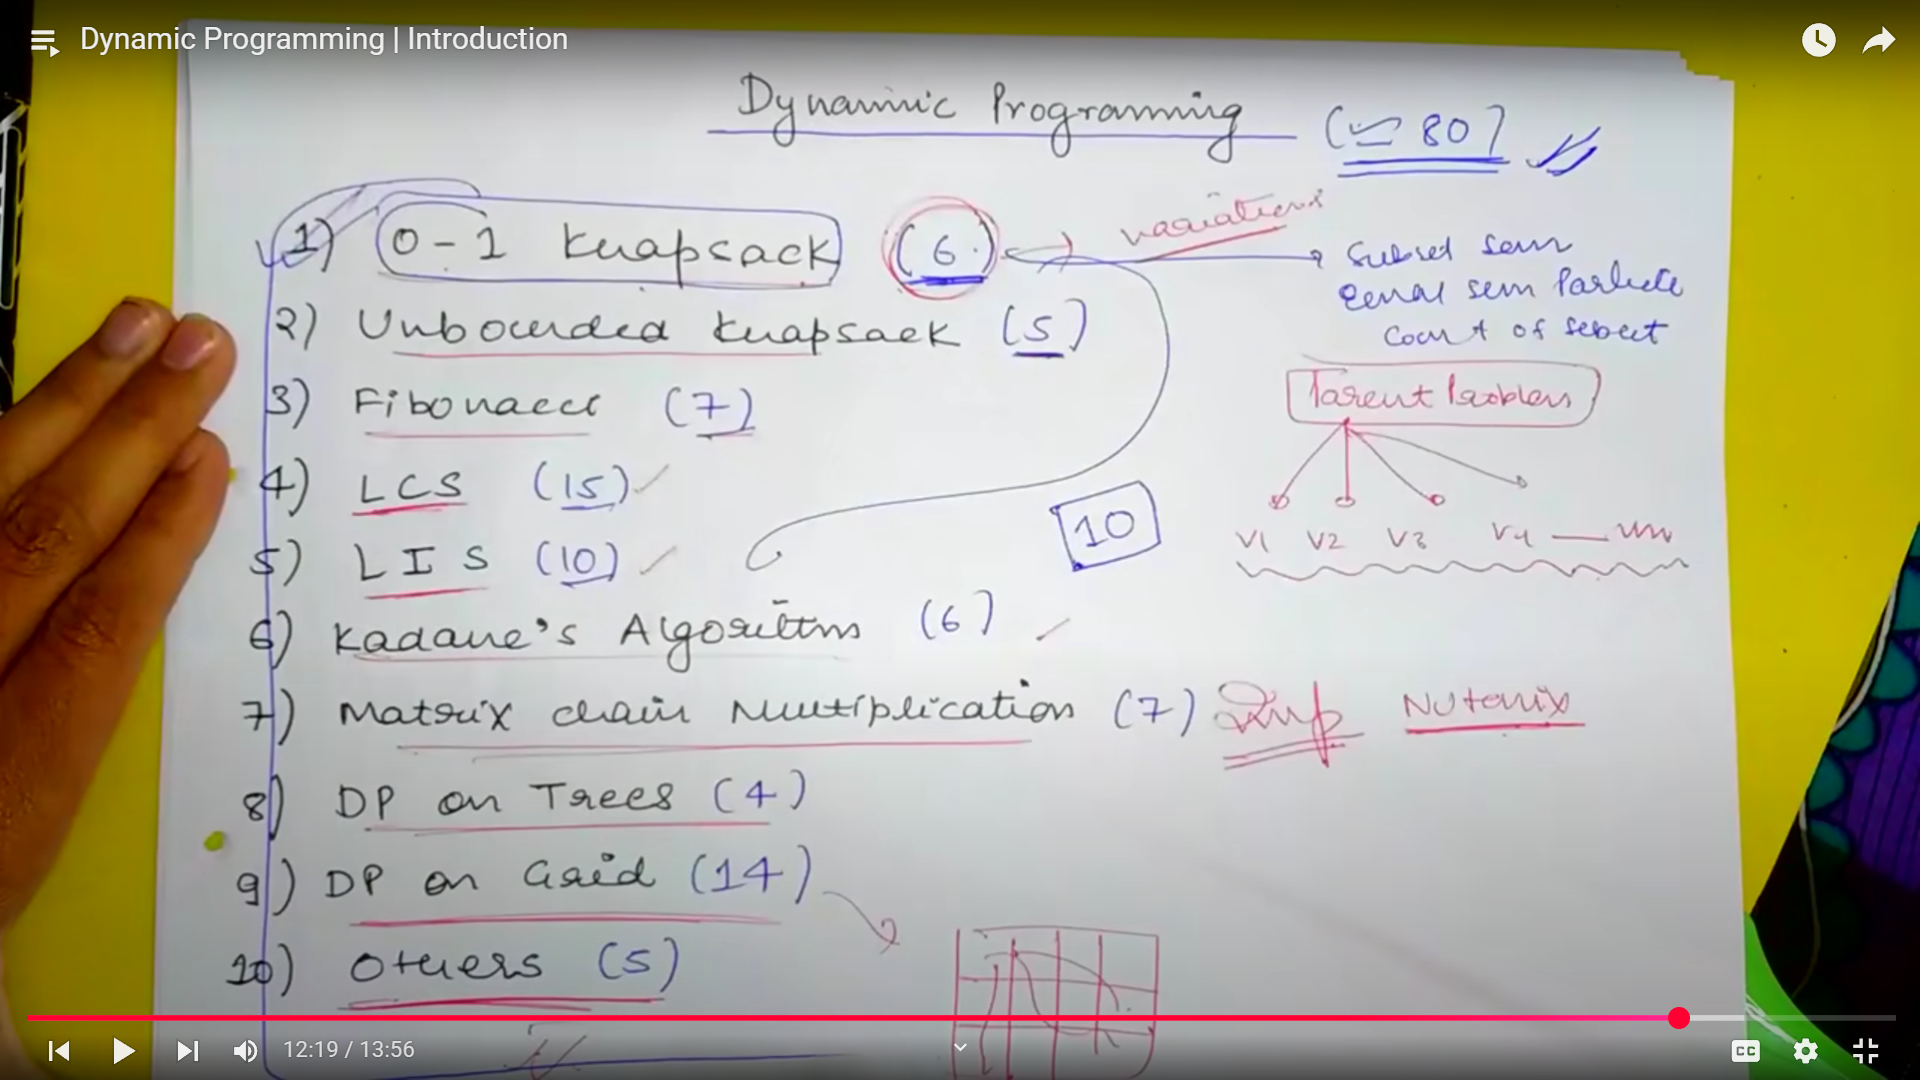 Dynamic Programming | Introduction
Dynamic Programming (≃ 80)
1) 0-1 Knapsack (6) variations
Subset sum
Equal sum Partition
Count of subset
2) Unbounded Knapsack (5)
3) Fibonacci (7)
Parent Problem
V1 V2 V3 V4
4) LCS (15)
10
5) LIS (10)
6) Kadane's Algorithm (6)
7) Matrix chain Multiplication (7) Imp Nutanix
8) DP on Trees (4)
9) DP on Grid (14)
10) Others (5)
12:19 / 13:56
CC